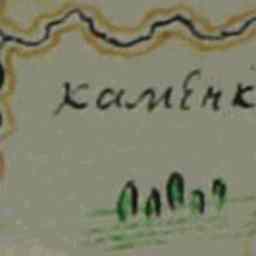 каменк